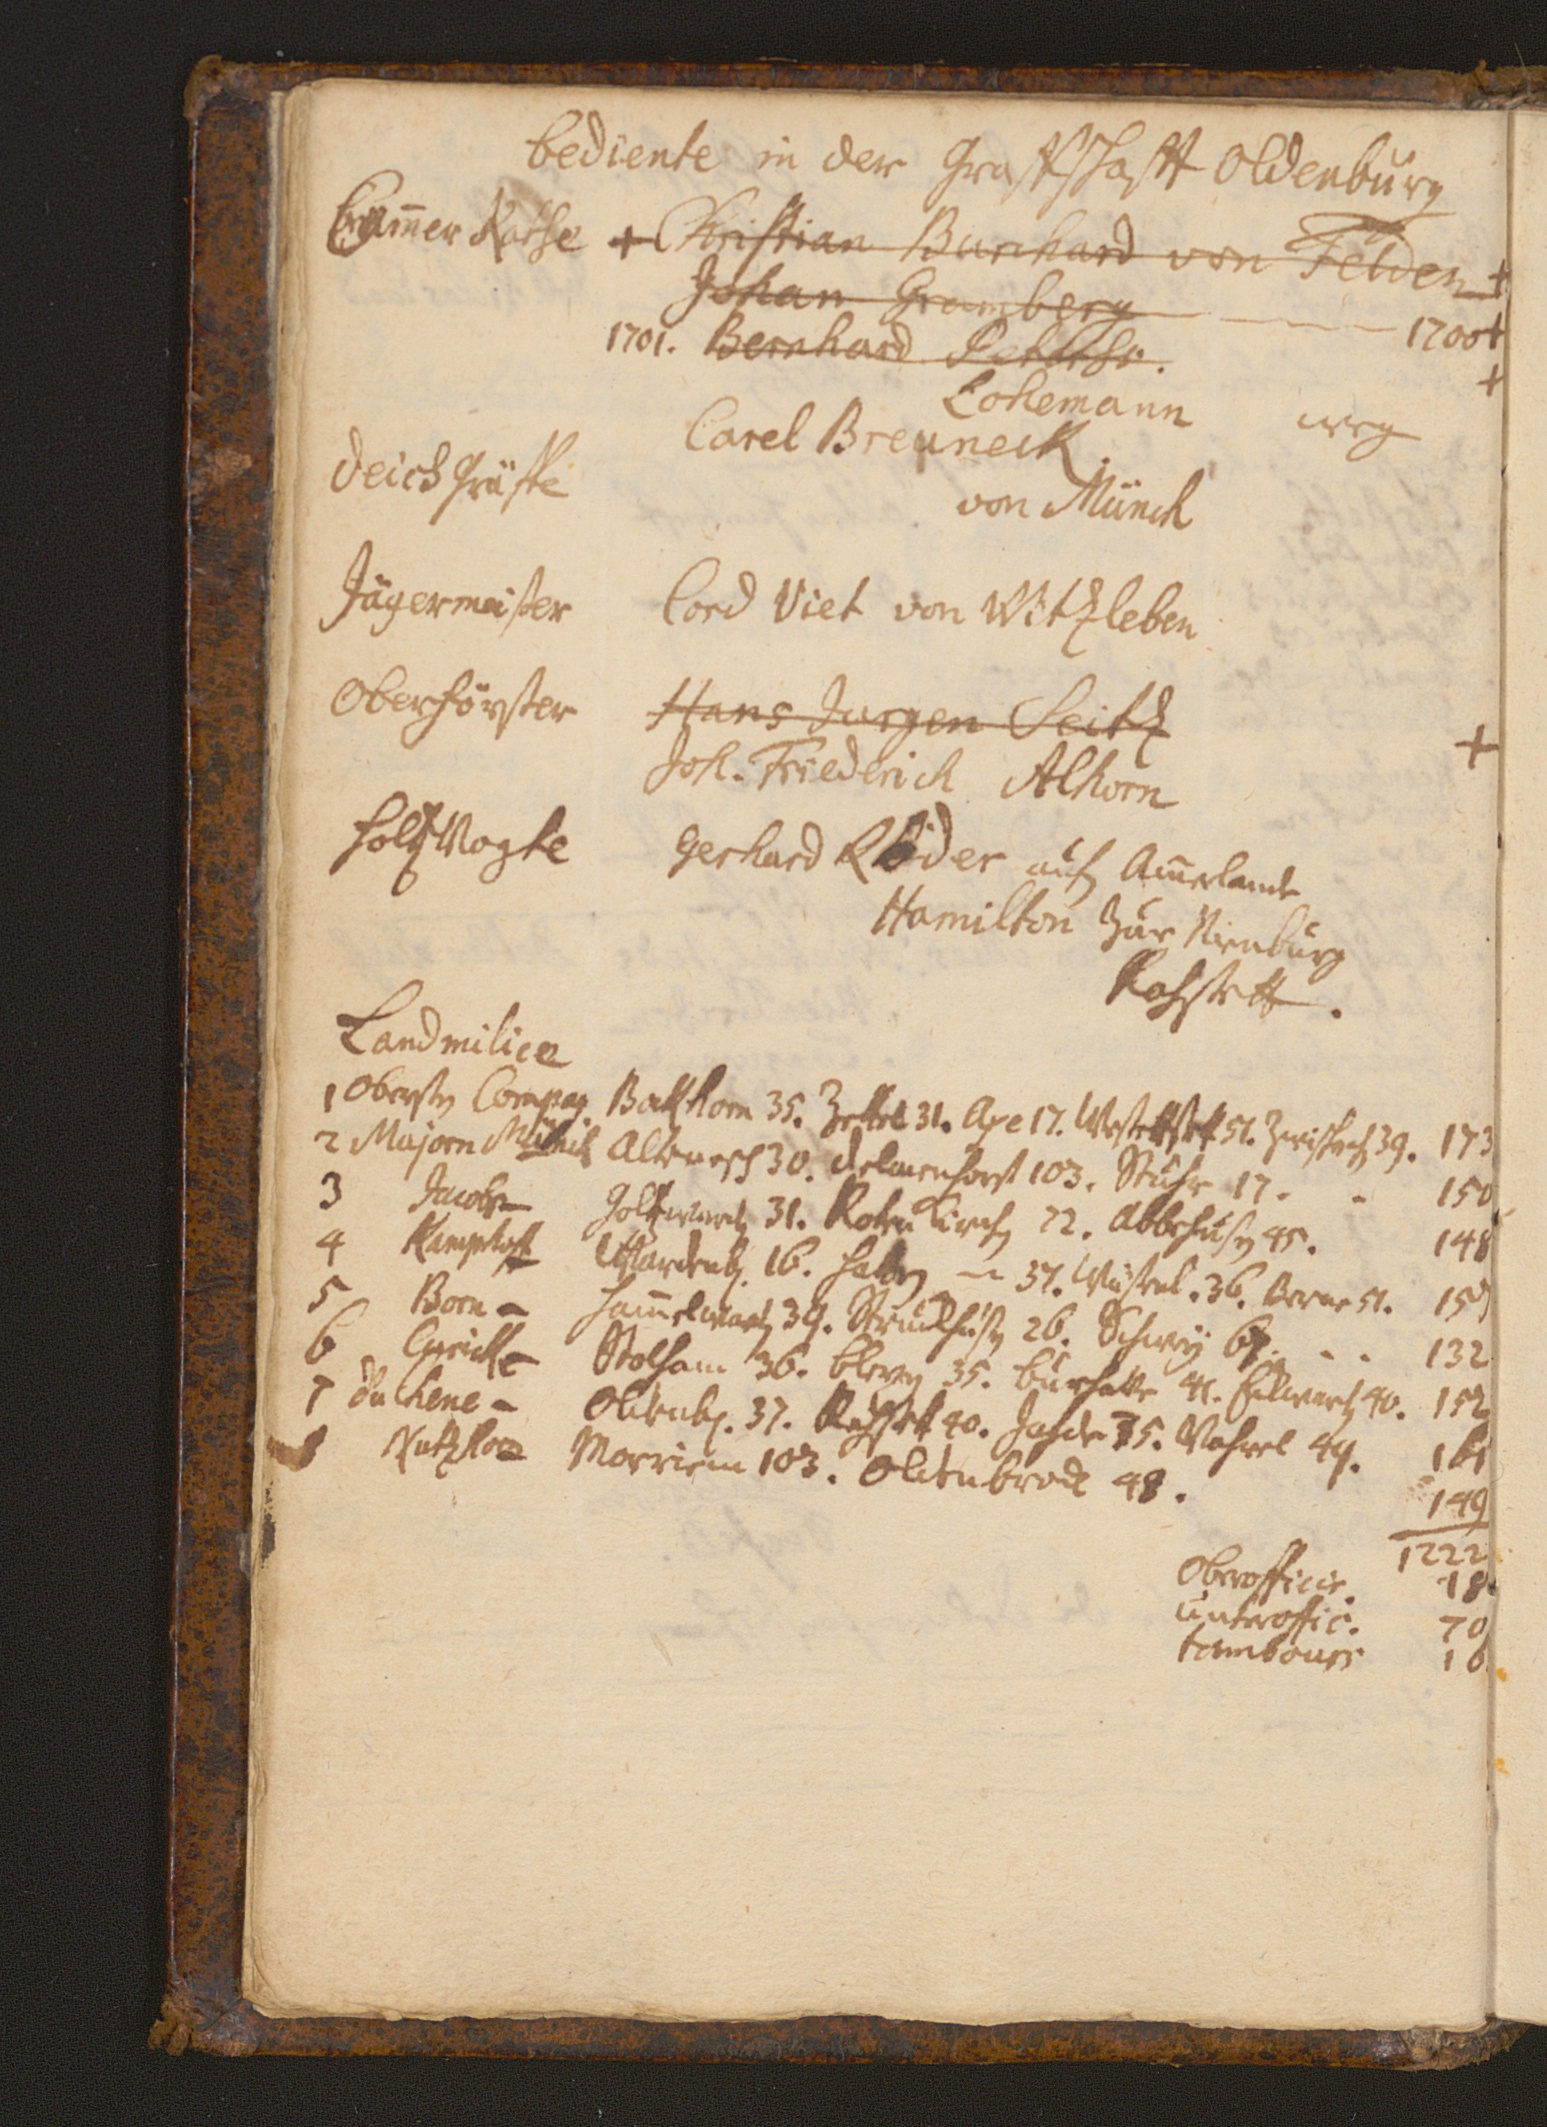 Bediente in der Graffschafft Oldenburg
Cammer Räthe + Christian Burchard von Felden +
Johan Gramberg 1700 +
1701. Bernhard +
Lohemann weg
Carel Breuneck.
Deich Gräffe von Münch
Jägermeister Cord Viet von Witzleben
Oberförster Hans Jurgen Seitz +
Joh. Friederich Alhorn
Holtz Vogte Gerhard Röder aufm Amerlande
Hamilton Zur Nienburg
Rahstett.
Landmilice
1 Obersten Compag. Bockhorn 35. Zettel 31. Ape 17. Westerstett 51. Zwischen 39. 173
2 Majorn Münnich Altenesch 30. Delmenhorst 103. Stuhr 17. - 150
3 Jacobs - Goltzward 31. Rotenkirchen 72. Abbehusen 45. 148
4 Kamphoff Wardenb. 16. Hatten - 37. Wüstenl. 36. Berne 51.
5 Born - Hammelward 39. Strückhusen 26. Schwey 67. - - 132
6 Gerick - Stolham 36. Blexen 35. Burhave 41. Eckward 40. 152
7 du Chene - Oldenb. 37. Rahstett 40. Jahde 35. Vahrel 49. 161
8 Nutzhorn Morriem 103. Oldenbrock 48. 149
1222
Oberofficir. 18
Unteroffic. 70
tambours 16